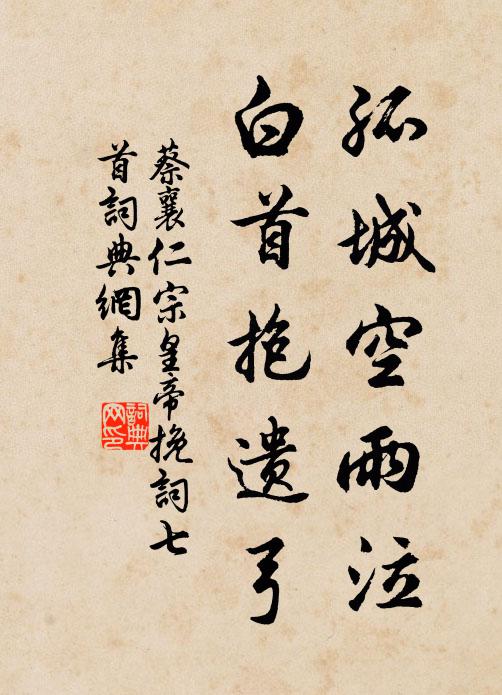 孤城空雨泣
白首抱遗弓
蔡襄仁宗皇帝挽詞七
首詞典網集
詞典
网印